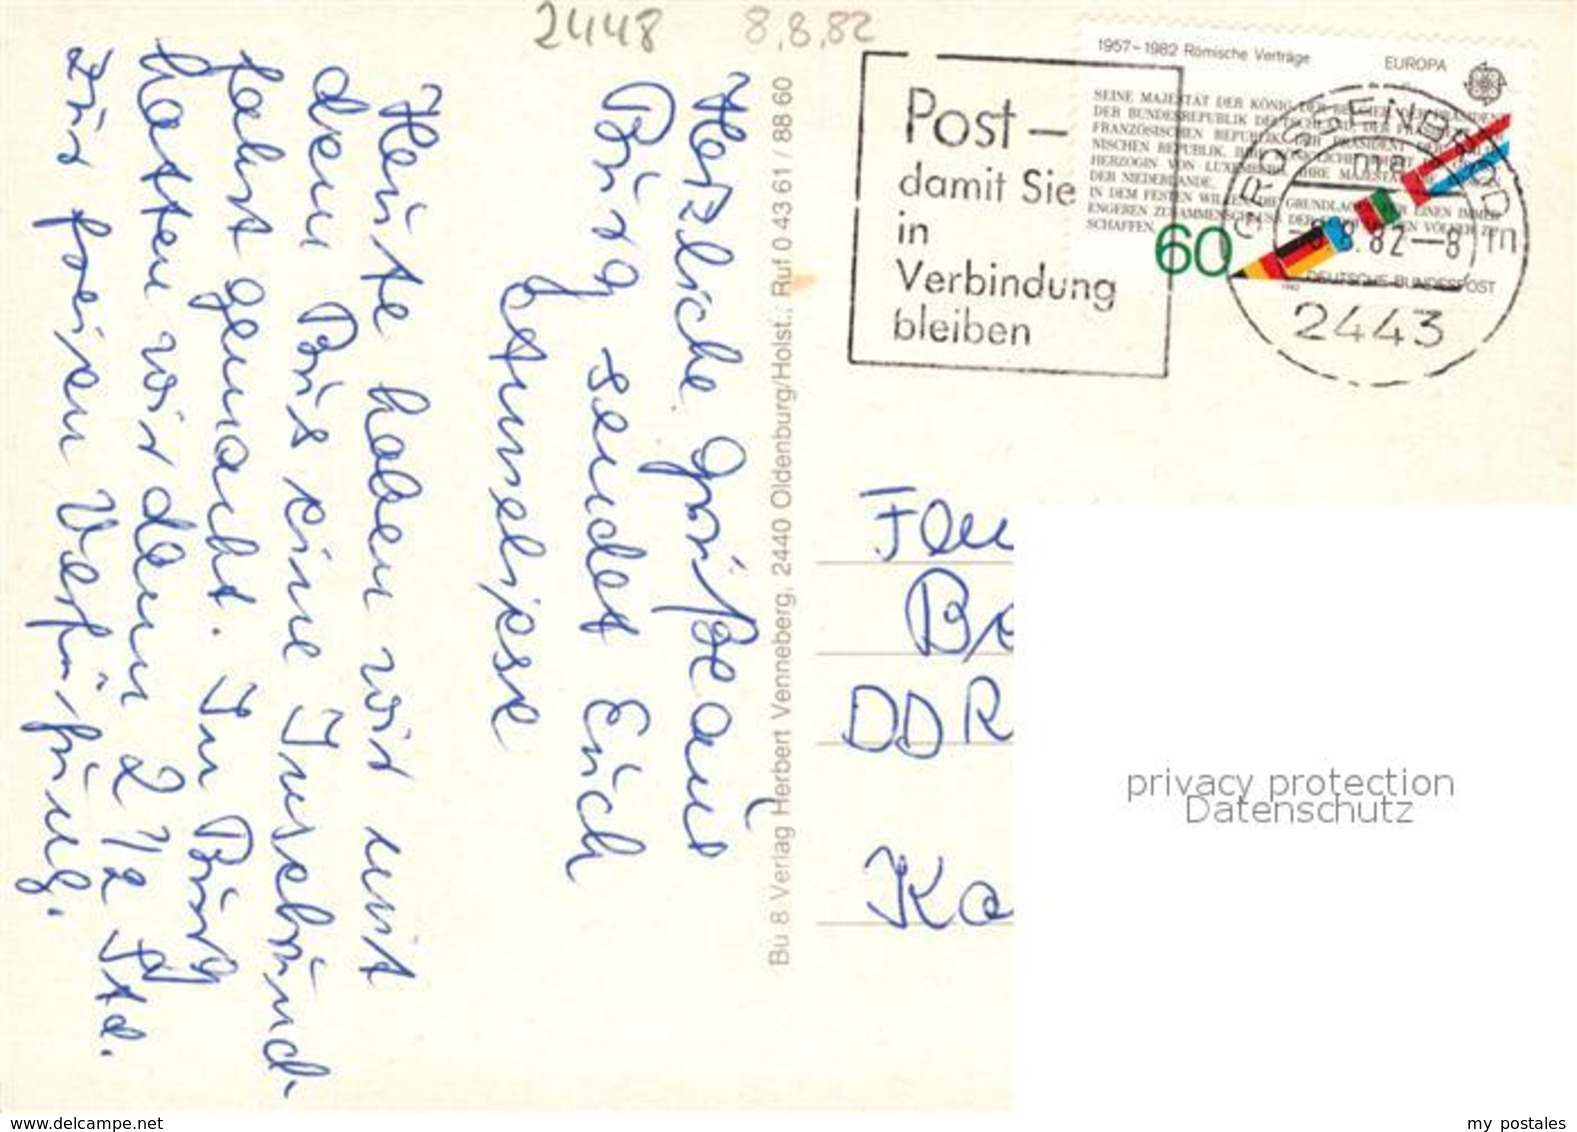 2448
8.8.82
1957–1982 Römische Verträge
EUROPA
SEINE MAJESTÄT DER KÖNIG DER BELGIER, DER PRÄSIDENT
DER BUNDESREPUBLIK DEUTSCHLAND, DER
FRANZÖSISCHEN REPUBLIK, DER PRÄSIDENT DER
NISCHEN REPUBLIK, IHRE KÖNIGLICHE HOHEIT DIE
HERZOGIN VON LUXEMBURG, IHRE MAJESTÄT
DER NIEDERLANDE,
IN DEM FESTEN WILLEN, DIE GRUNDLAGEN FÜR EINEN IMMER
ENGEREN ZUSAMMENSCHLUSS DER VÖLKER ZU
SCHAFFEN,
60
DEUTSCHE BUNDESPOST
Post –
damit Sie
in
Verbindung
bleiben
GROSSENBROD
ma
-8.8.82–8
m
2443
Herzliche Grüße aus
Burg sendet Euch
Anneliese
Heute haben wir mit
dem Bus eine Inselrund-
fahrt gemacht. In Burg
hatten wir dann 2 1/2 Std.
zur freien Verfügung.
Bu 8 Verlag Herbert Venneberg, 2440 Oldenburg/Holst., Ruf 0 43 61 / 88 60
Fam
Be
DDR
Ka
privacy protection
Datenschutz
www.delcampe.net
my postales